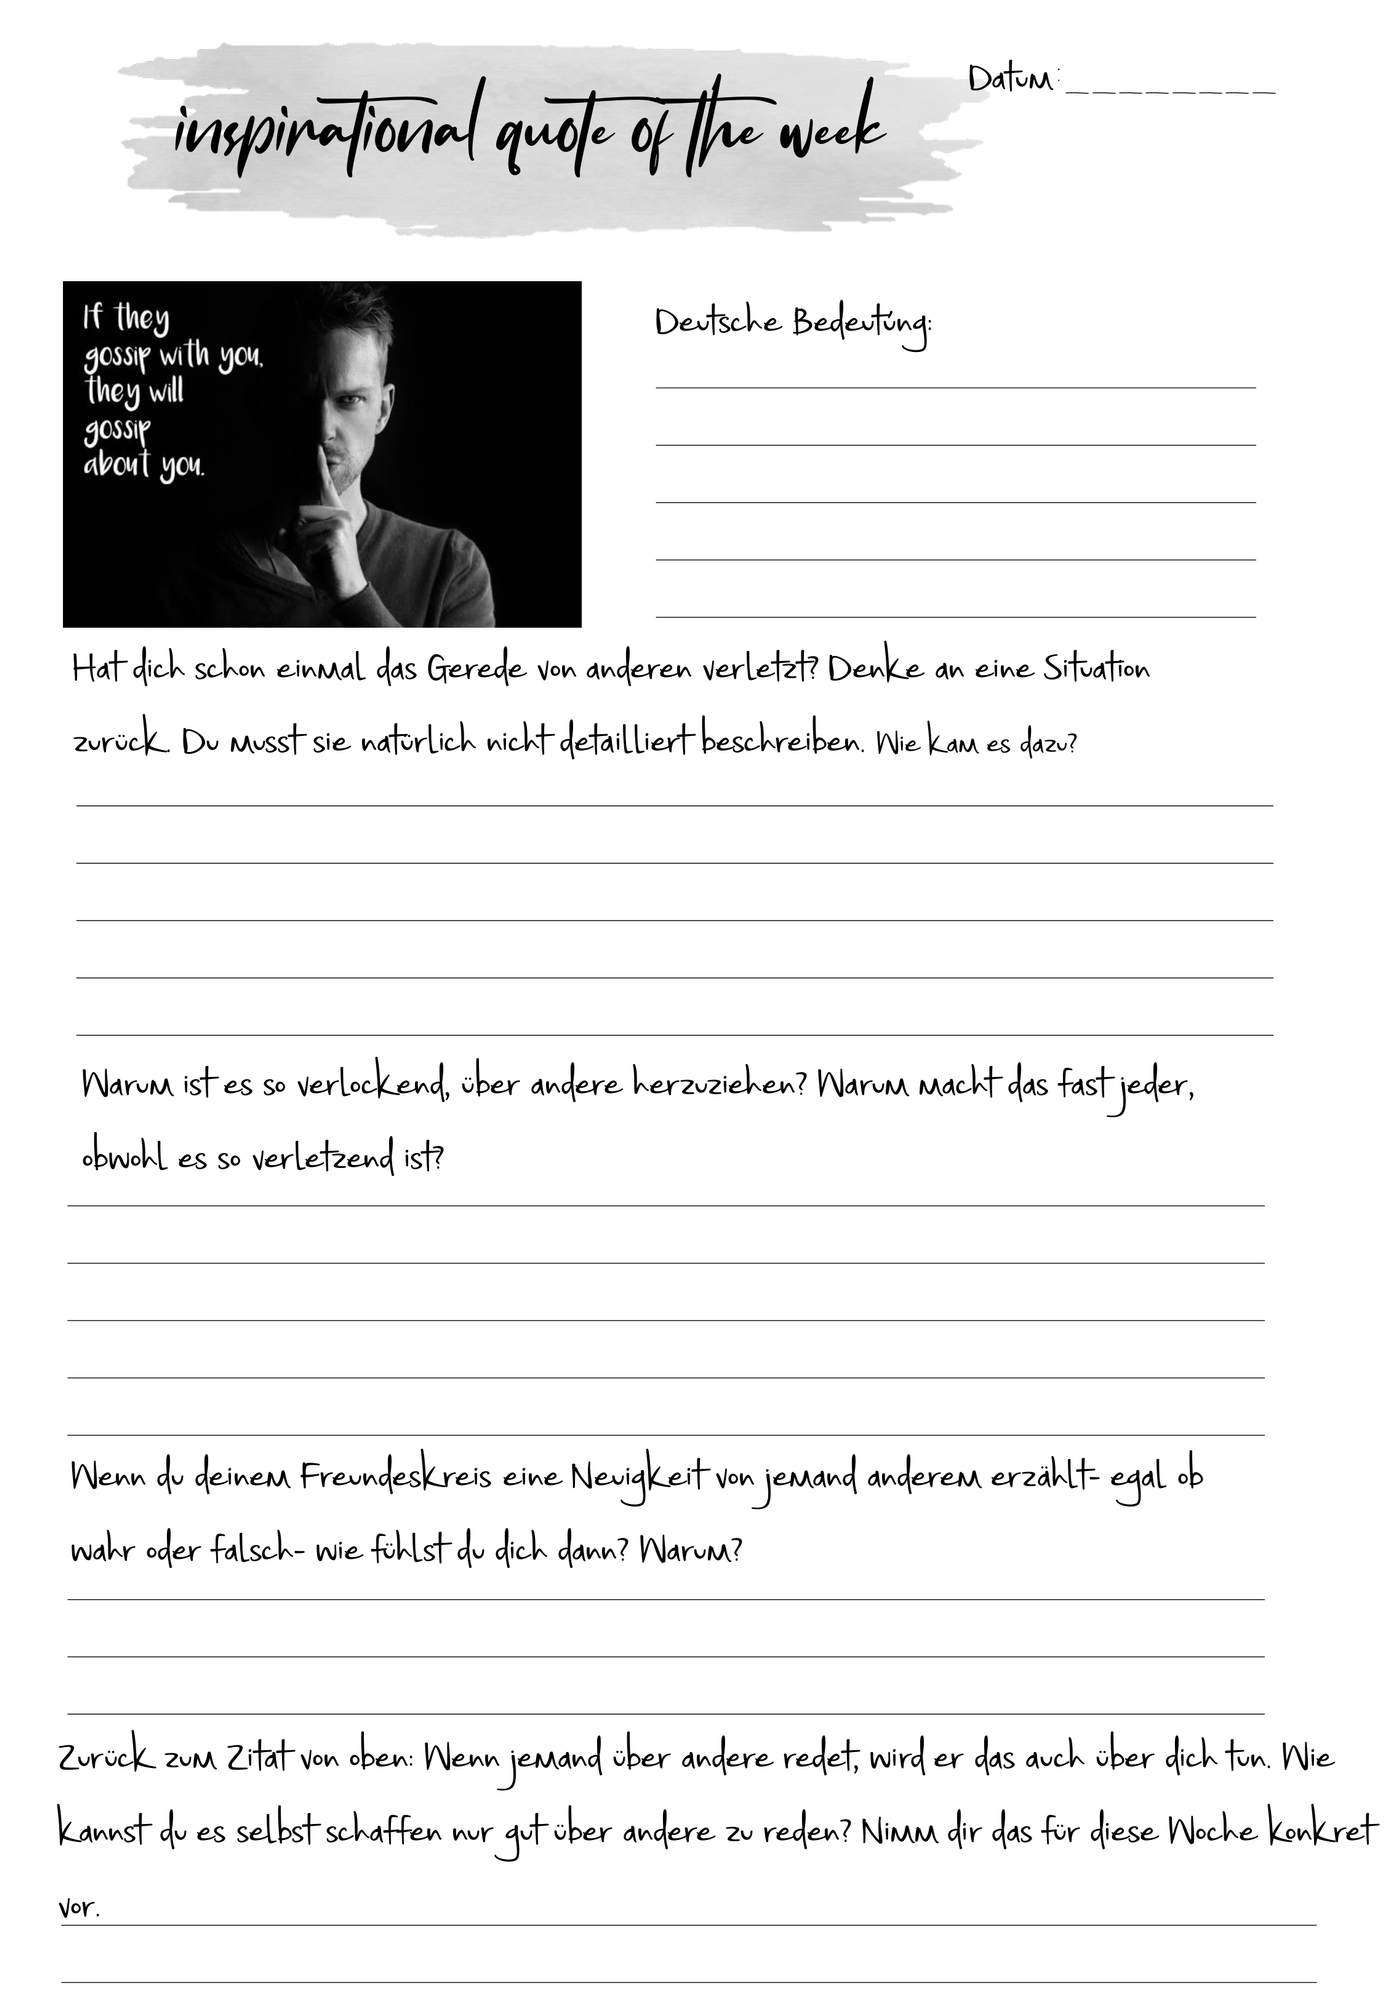 inspirational quote of the week
Datum: _ _ _ _ _ _ _ _
If they
gossip with you,
they will
gossip
about you.
Deutsche Bedeutung:
Hat dich schon einmal das Gerede von anderen verletzt? Denke an eine Situation
zurück. Du musst sie natürlich nicht detailliert beschreiben. Wie kam es dazu?
Warum ist es so verlockend, über andere herzuziehen? Warum macht das fast jeder,
obwohl es so verletzend ist?
Wenn du deinem Freundeskreis eine Neuigkeit von jemand anderem erzählt- egal ob
wahr oder falsch- wie fühlst du dich dann? Warum?
Zurück zum Zitat von oben: Wenn jemand über andere redet, wird er das auch über dich tun. Wie
kannst du es selbst schaffen nur gut über andere zu reden? Nimm dir das für diese Woche konkret
vor.